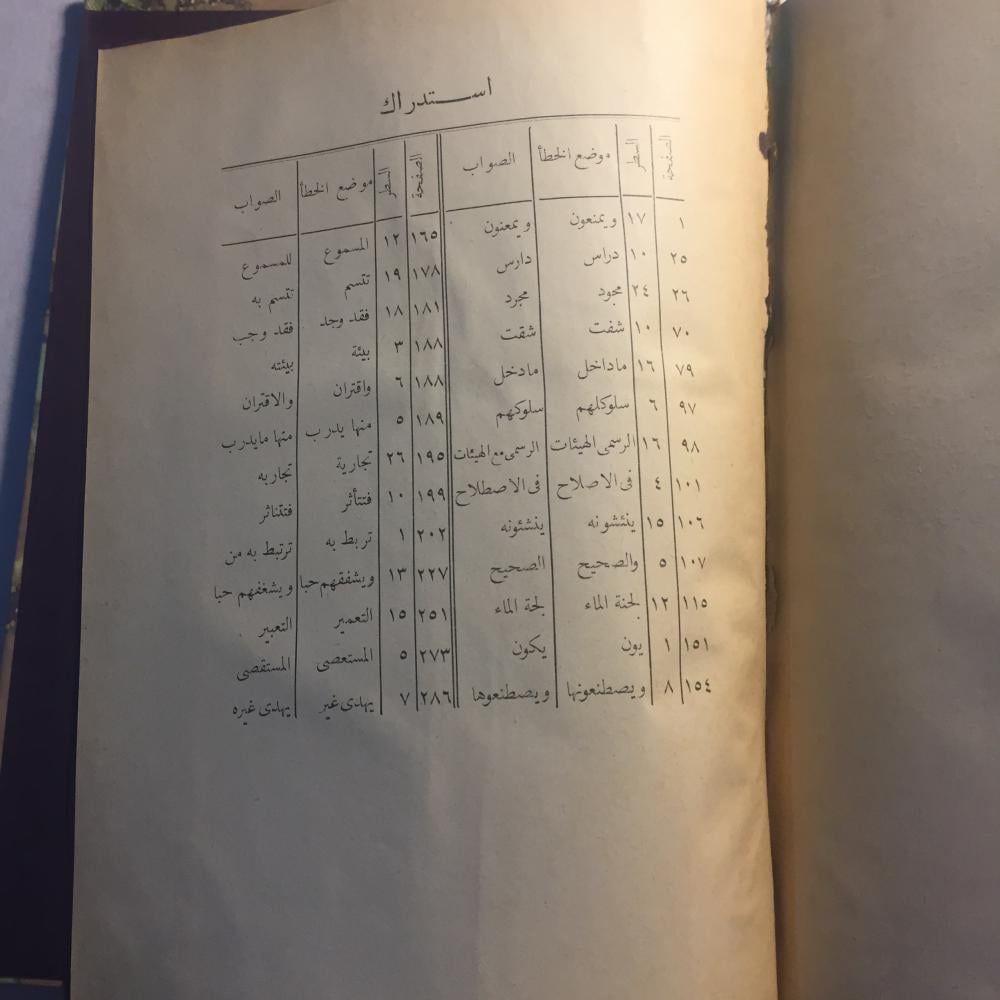 استدراك
الصفحة السطر موضع الخطأ الصواب الصفحة السطر موضع الخطأ الصواب
١ ١٧ ويمنعون ويمعنون ١٦٥ ١٢ المسموع للمسموع
٢٥ ١٠ دراس دارس ١٧٨ ١٩ تتسم تتسم به
٢٦ ٢٤ مجود مجرد ١٨١ ١٨ فقد وجد فقد وجب
٧٠ ١٠ شفت شقت ١٨٨ ٣ بيئة بيئته
٧٩ ١٦ ماداخل مادخل ١٨٨ ٦ واقتران والاقتران
٩٧ ٦ سلوكلهم سلوكهم ١٨٩ ٥ منها يدرب منها مايدرب
٩٨ ١٦ الرسمى الهيئات الرسمى مع الهيئات ١٩٥ ٢٦ تجارية تجاربه
١٠١ ٤ فى الاصلاح فى الاصطلاح ١٩٩ ١٠ فتتأثر فتتناثر
١٠٦ ١٥ ينئشونه ينشئونه ٢٠٢ ١ تربط به ترتبط به من
١٠٧ ٥ والصحيح الصحيح ٢٢٧ ١٣ ويشفقهم حبا ويشغفهم حبا
١١٥ ١٢ لجنة الماء لجة الماء ٢٥١ ١٥ التعمير التعبير
١٥١ ١ يون يكون ٢٧٣ ٥ المستعصى المستقصى
١٥٤ ٨ ويصطنعونها ويصطنعوها ٢٨٦ ٧ يهدى غير يهدى غيره